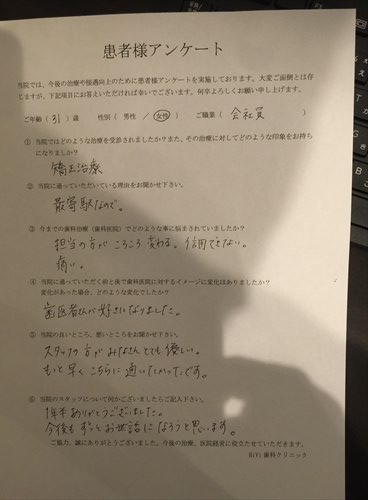 患者様アンケート
当院では、今後の治療や接遇向上のために患者様アンケートを実施しております。大変ご面倒とは存
じますが、下記項目にお答えいただければ幸いでございます。何卒よろしくお願い申し上げます。
ご年齢（ 31 ）歳 性別（ 男性 ／ 女性 ） ご職業（ 会社員 ）
① 当院ではどのような治療を受診されましたか？また、その治療に対してどのような印象をお持ち
になりましたか？
矯正治療
② 当院に通っていただいている理由をお聞かせ下さい。
最寄駅なので。
③ 今までの歯科治療（歯科医院）でどのような事に悩まされていましたか？
担当の方が ころころ変わる。信用できない。
痛い。
④ 当院に通っていただく前と後で歯科医院に対するイメージに変化はありましたか？
変化があった場合、どのような変化でしたか？
歯医者さんが好きになりました。
⑤ 当院の良いところ、悪いところをお聞かせ下さい。
スタッフの方が みなさん とても優しい。
もっと早く こちらに 通いたかったです。
⑥ 当院のスタッフについて何かございましたらご記入下さい。
1年半 ありがとうございました。
今後も ずっと お世話に なろうと思います。
ご協力、誠にありがとうございました。今後の治療、医院経営に役立たせていただきます。
歯科クリニック